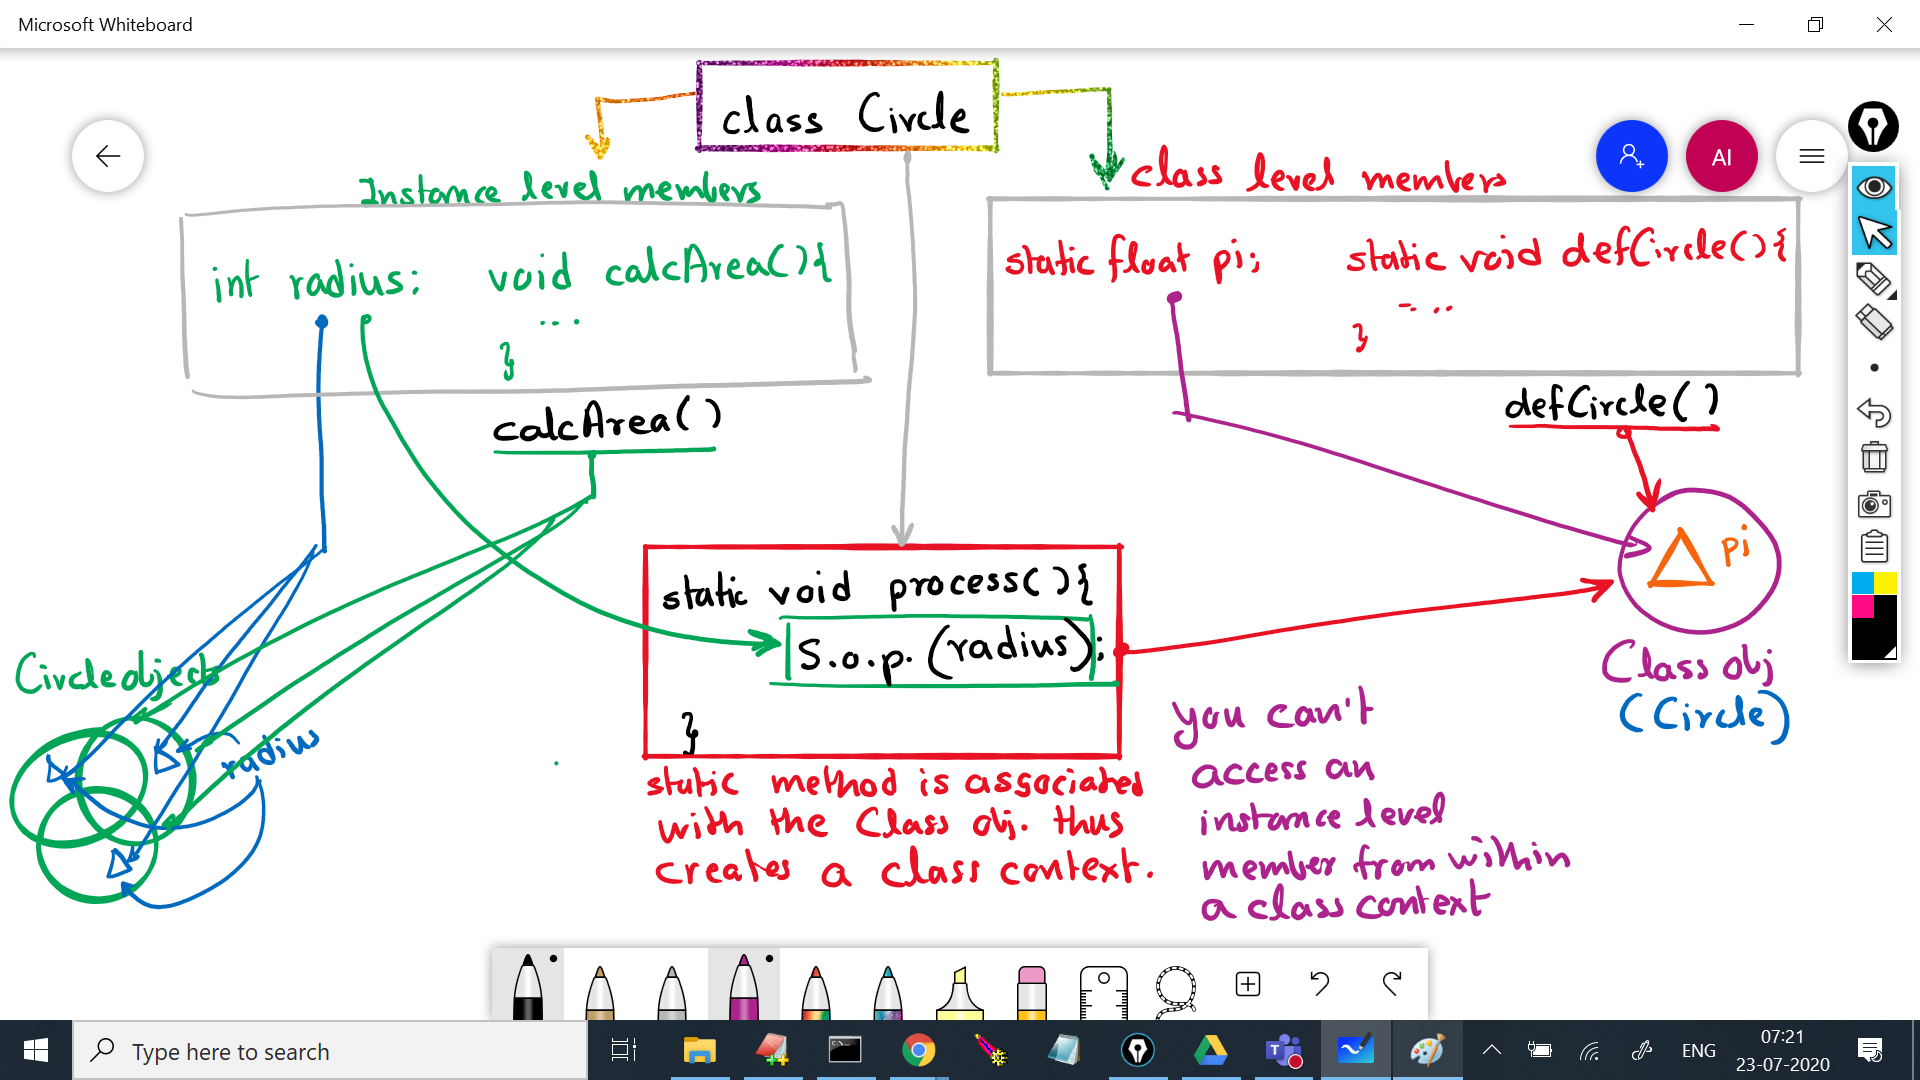 Microsoft Whiteboard
class Circle
AI
Instance level members
class level members
int radius; void calcArea(){
...
}
static float pi; static void defCircle(){
-...
}
calcArea()
defCircle()
pi
static void process(){
S.o.p.(radius);
}
Circle objects
radius
Class obj
(Circle)
static method is associated
with the Class obj. thus
creates a class context.
you can't
access an
instance level
member from within
a class context
Type here to search
ENG
07:21
23-07-2020